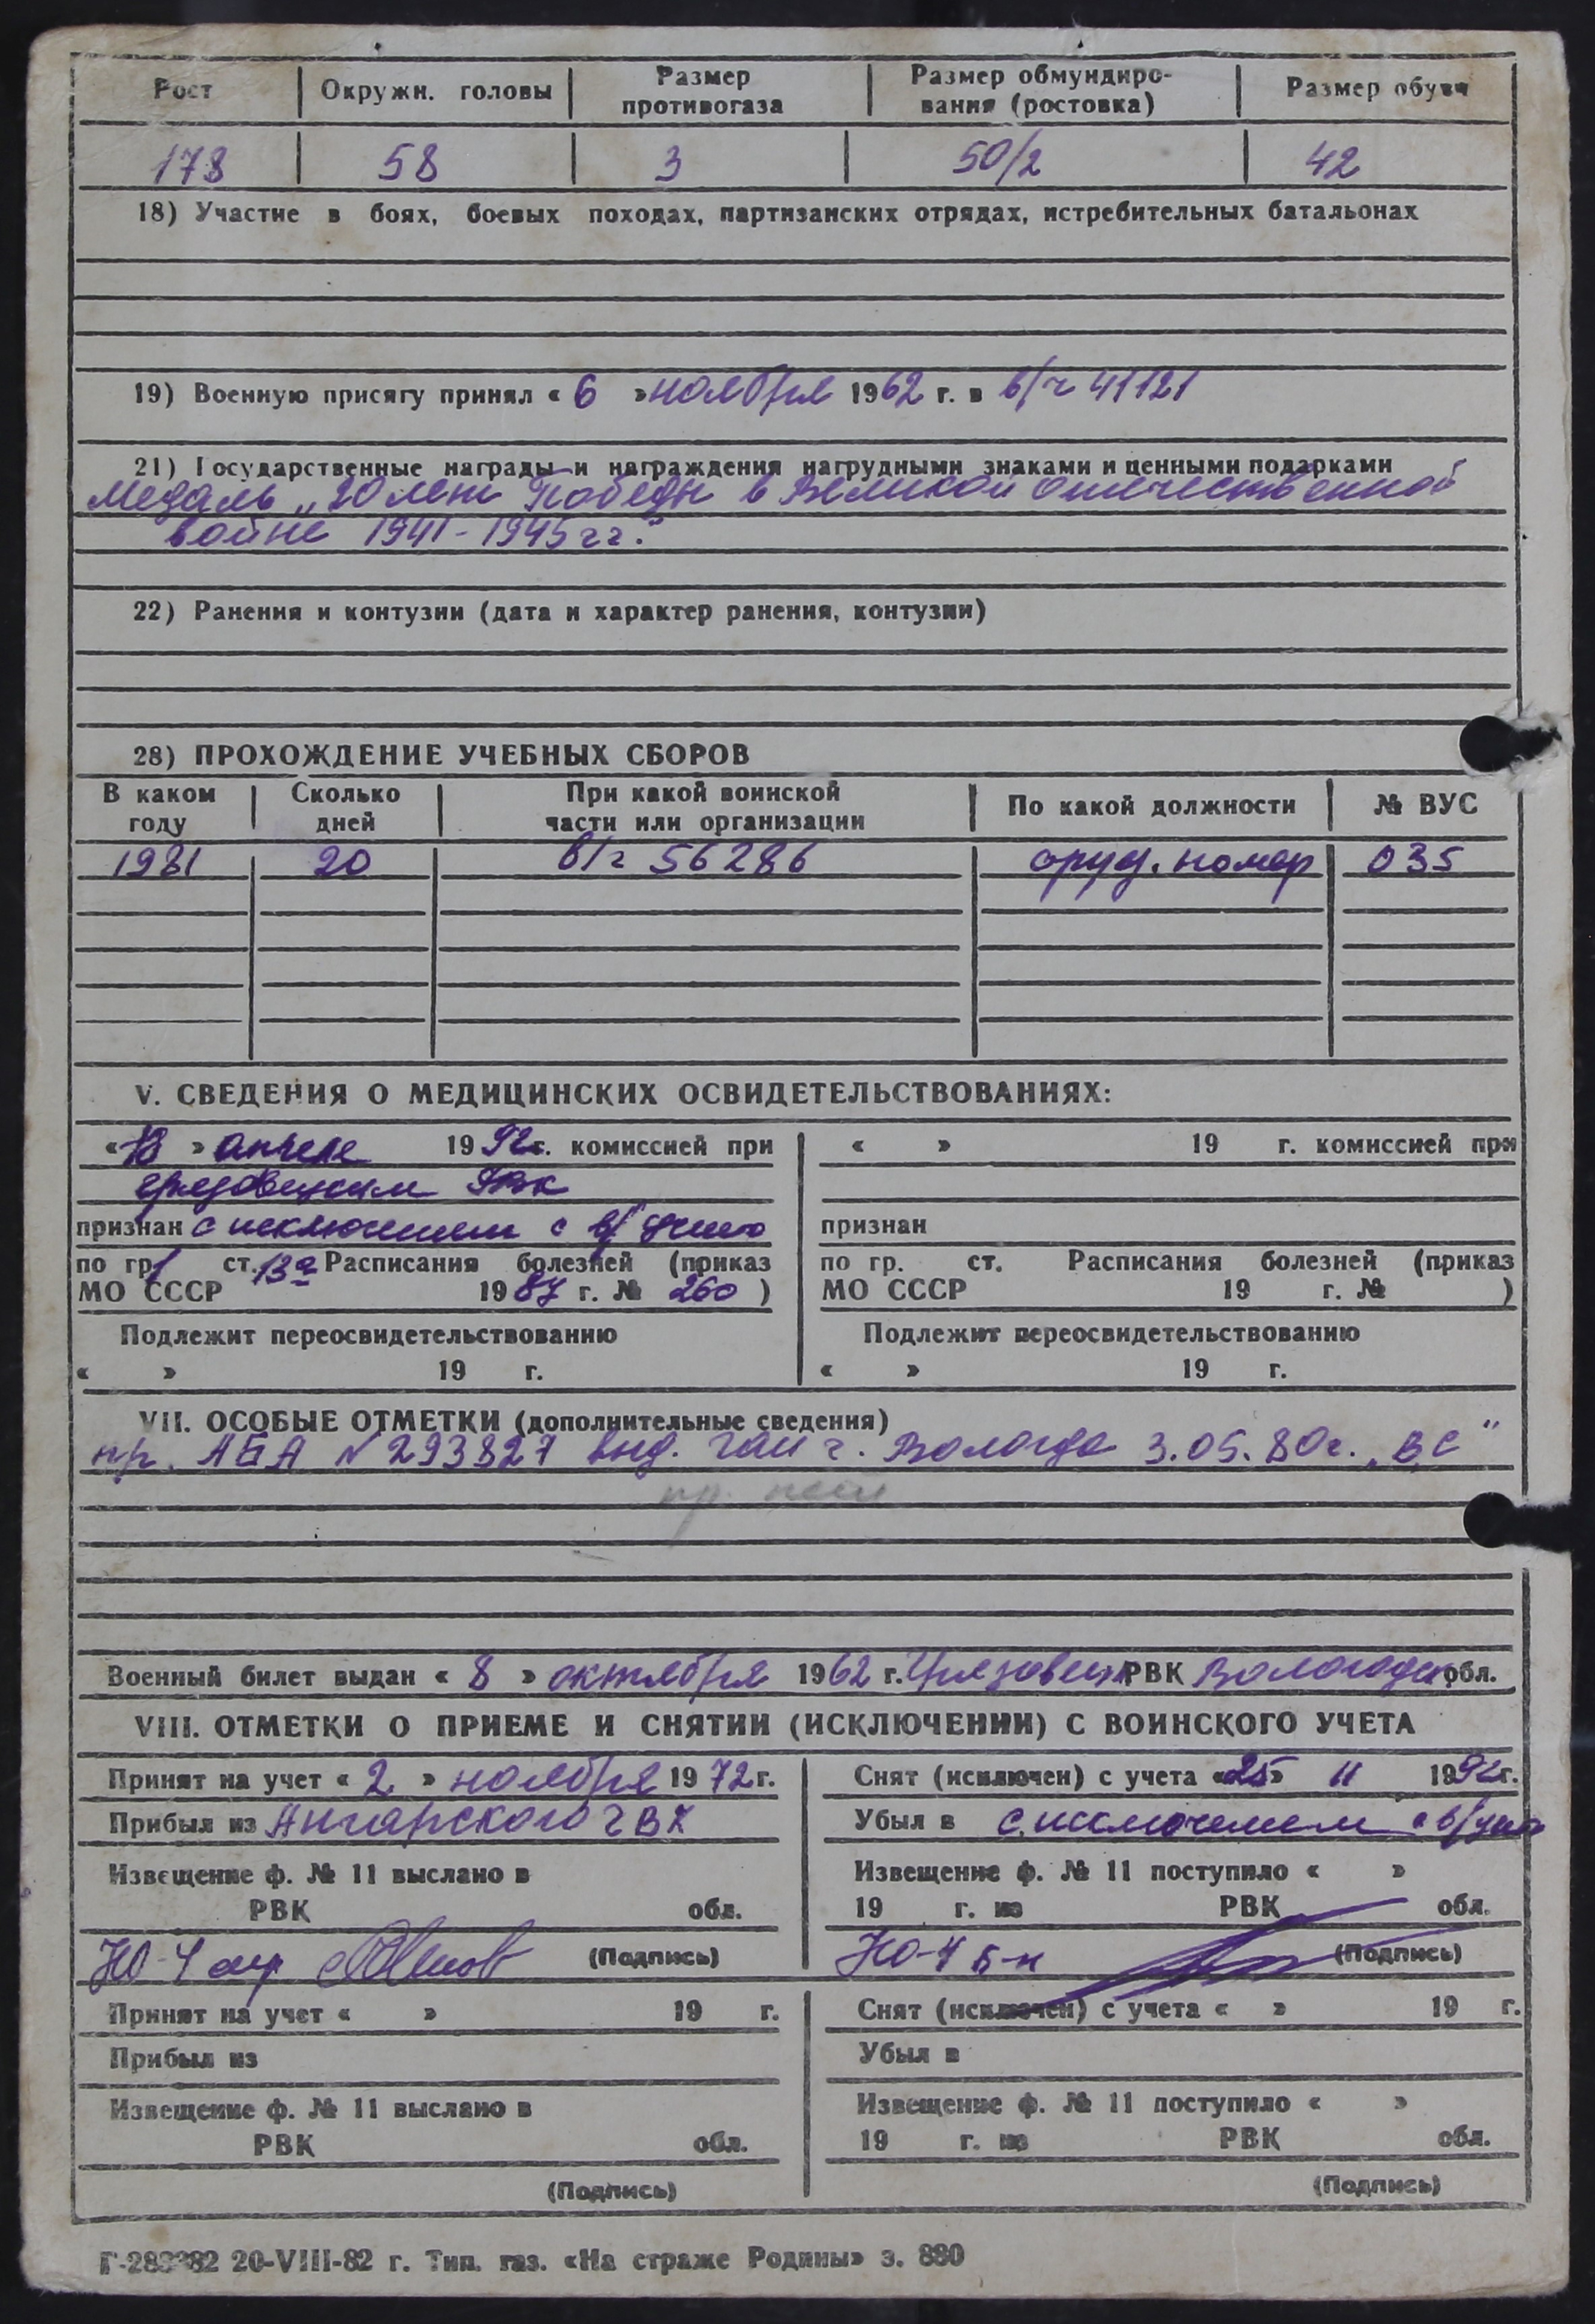 Рост Окружн. головы Размер противогаза Размер обмундиро-вания (ростовка) Размер обуви
178 58 3 50/2 42
18) Участие в боях, боевых походах, партизанских отрядах, истребительных батальонах
19) Военную присягу принял « 6 » ноября 1962 г. в в/ч 41121
21) Государственные награды и награждения нагрудными знаками и ценными подарками
Медаль „20 лет Победы в Великой отечественной
войне 1941-1945 гг."
22) Ранения и контузии (дата и характер ранения, контузии)
28) ПРОХОЖДЕНИЕ УЧЕБНЫХ СБОРОВ
В каком году Сколько дней При какой воинской части или организации По какой должности № ВУС
1981 20 в/ч 56286 оруд. номер 035
V. СВЕДЕНИЯ О МЕДИЦИНСКИХ ОСВИДЕТЕЛЬСТВОВАНИЯХ:
« 13 » апреля 1992 г. комиссией при « » 19 г. комиссией при
Грязовецким РВК
признан с исключением с в/учета признан
по гр. 1 ст. 13а Расписания болезней (приказ по гр. ст. Расписания болезней (приказ
МО СССР 1987 г. № 260 ) МО СССР 19 г. № )
Подлежит переосвидетельствованию Подлежит переосвидетельствованию
« » 19 г. « » 19 г.
VII. ОСОБЫЕ ОТМЕТКИ (дополнительные сведения)
пр. АБА № 293827 выд. ГАИ г. Вологда 3.05.80г. „ВС"
Военный билет выдан « 8 » октября 1962 г. Грязовец. РВК Вологодск. обл.
VIII. ОТМЕТКИ О ПРИЕМЕ И СНЯТИИ (ИСКЛЮЧЕНИИ) С ВОИНСКОГО УЧЕТА
Принят на учет « 2 » ноября 1972 г. Снят (исключен) с учета «25» 11 1992г.
Прибыл из Ангарского ГВК Убыл в с исключением с в/учета
Извещение ф. № 11 выслано в Извещение ф. № 11 поступило « »
РВК обл. 19 г. из РВК обл.
НО-4 (Подпись) НО-4 (Подпись)
Принят на учет « » 19 г. Снят (исключен) с учета « » 19 г.
Прибыл из Убыл в
Извещение ф. № 11 выслано в Извещение ф. № 11 поступило « »
РВК обл. 19 г. из РВК обл.
(Подпись) (Подпись)
20-VIII-82 г. Тип. газ. «На страже Родины» з. 880